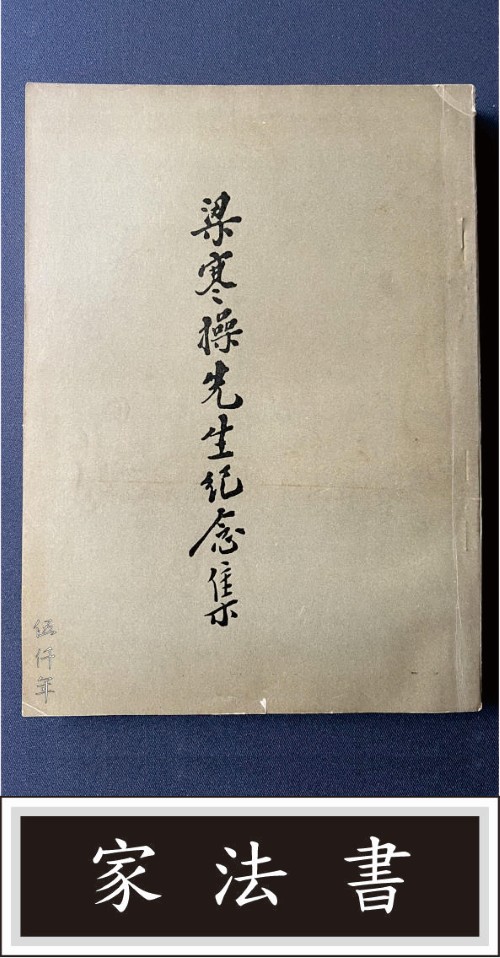 梁寒操先生紀念集
伍仟年
家法書